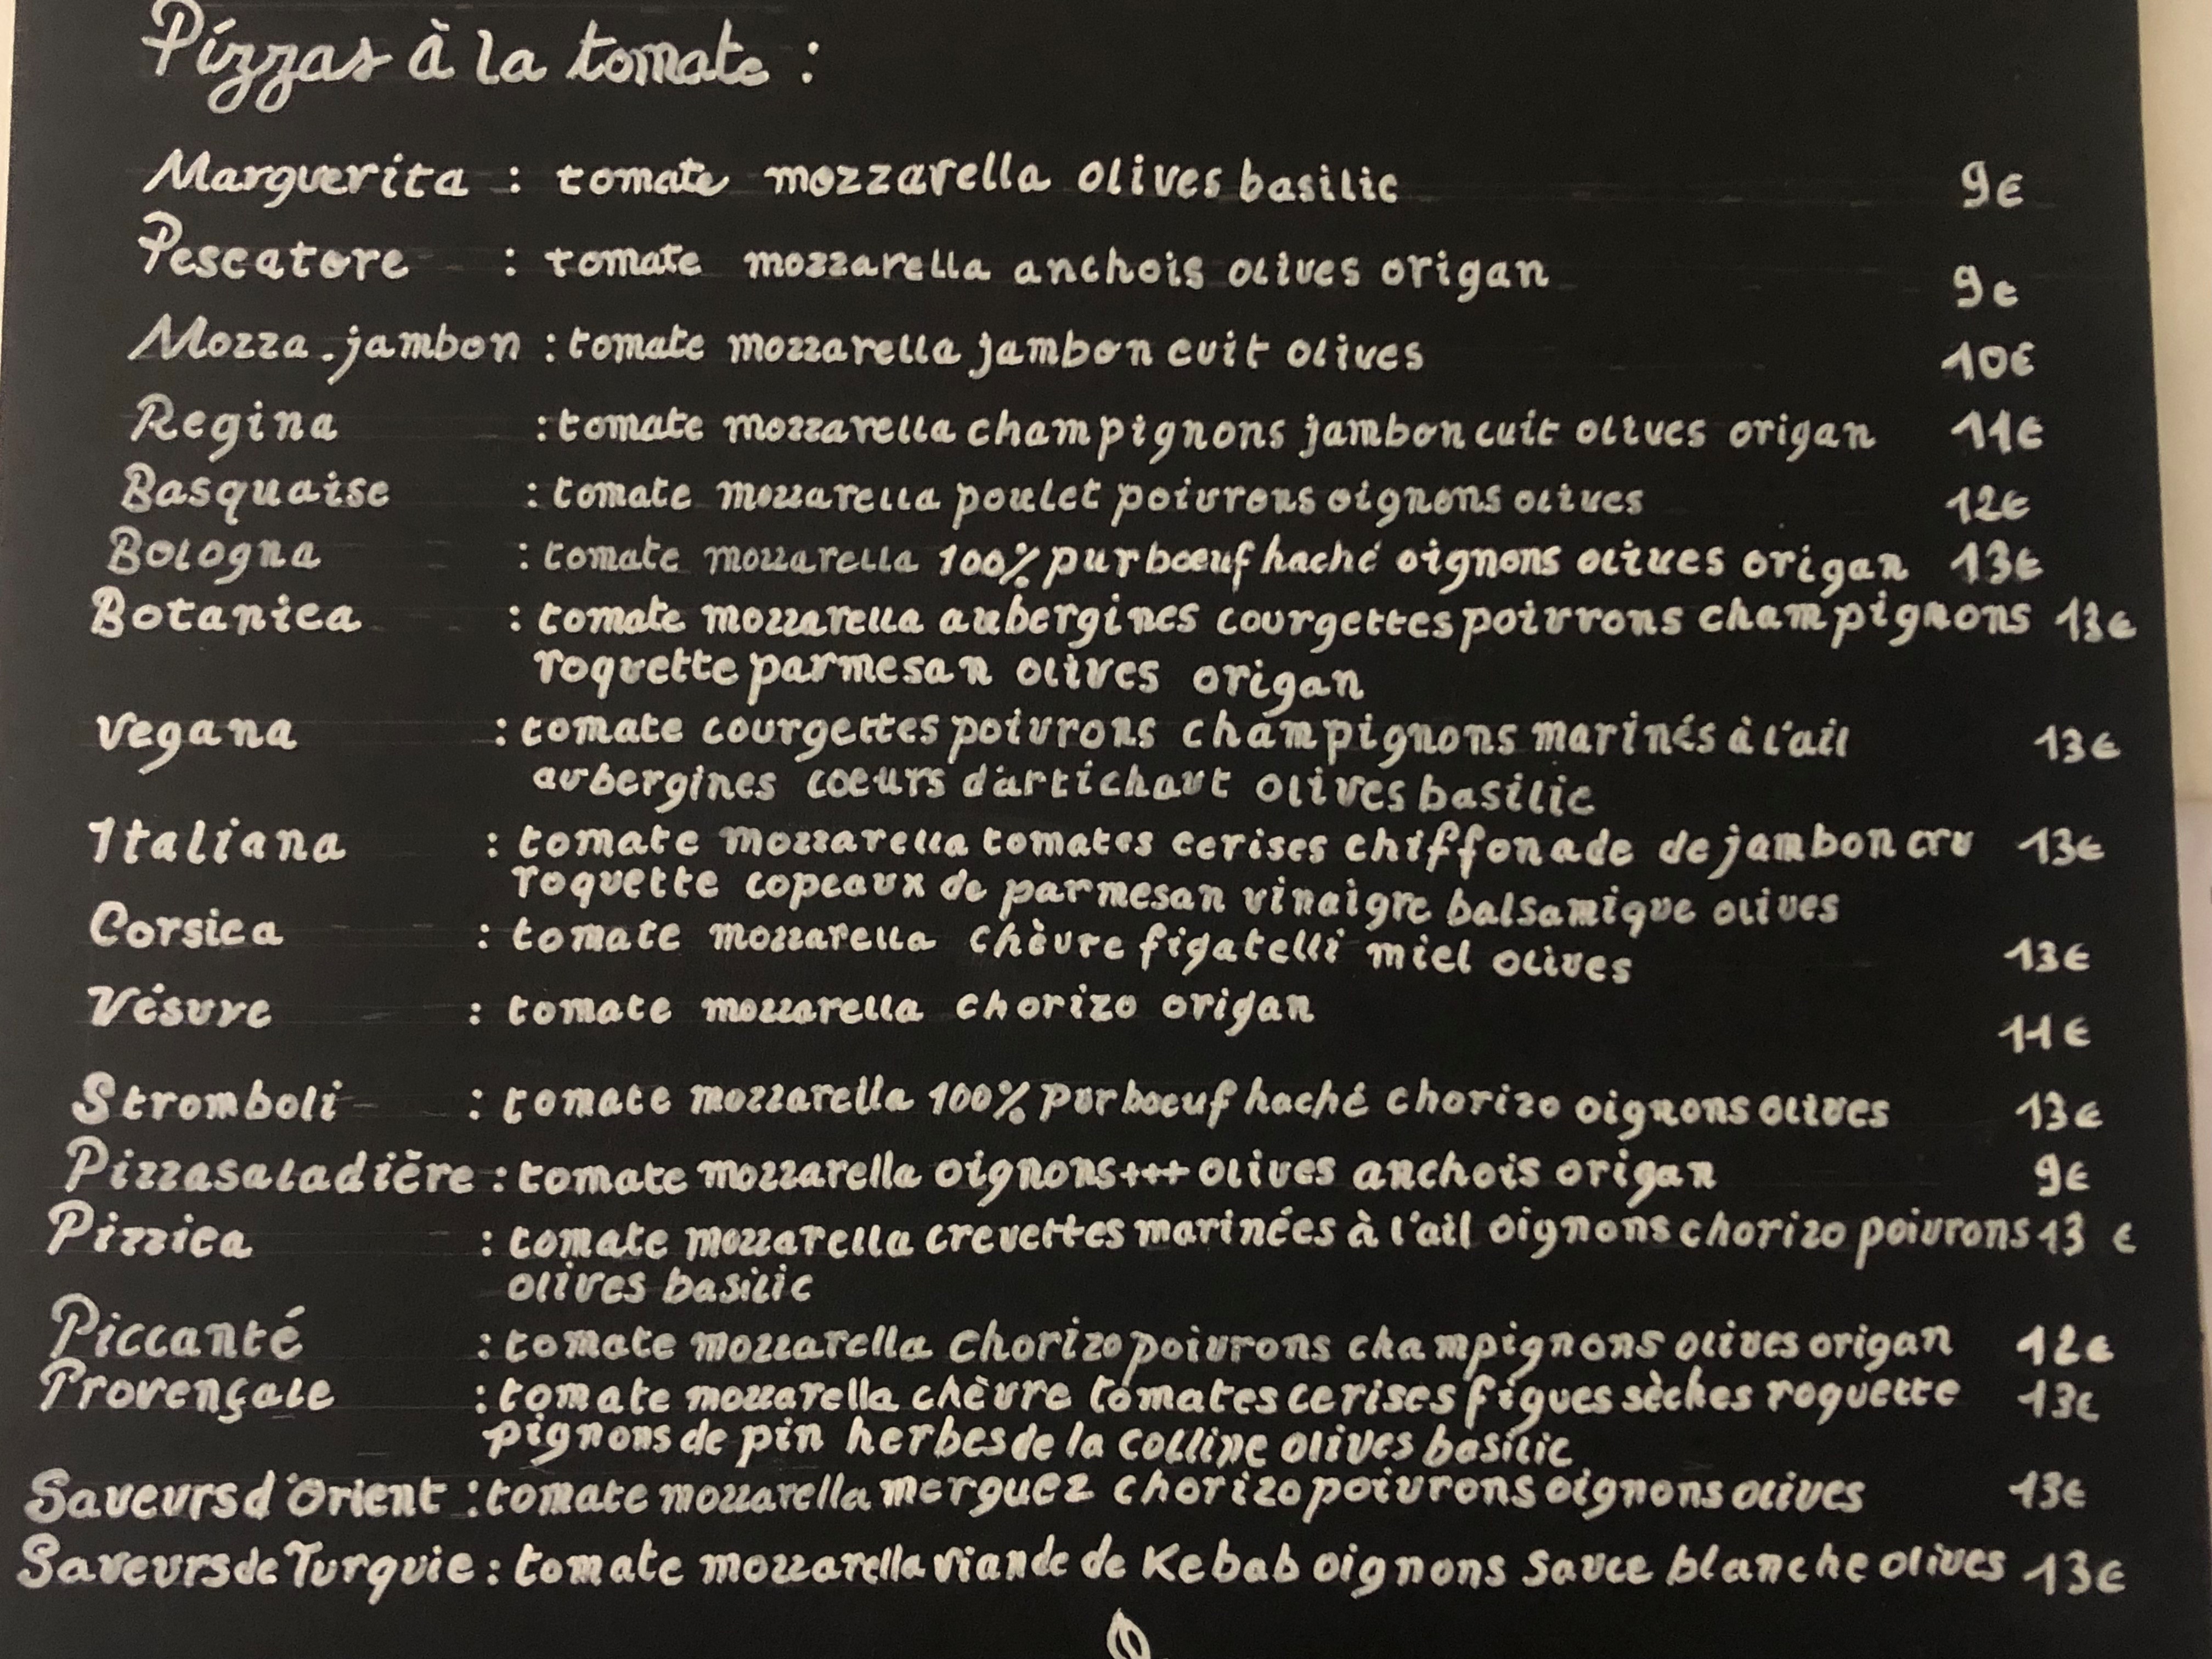 Pizzas à la tomate :
Marguerita : tomate mozzarella olives basilic 9€
Pescatore : tomate mozzarella anchois olives origan 9€
Mozza.jambon : tomate mozzarella jambon cuit olives 10€
Regina : tomate mozzarella champignons jambon cuit olives origan 11€
Basquaise : tomate mozzarella poulet poivrons oignons olives 12€
Bologna : tomate mozzarella 100% pur bœuf haché oignons olives origan 13€
Botanica : tomate mozzarella aubergines courgettes poivrons champignons 13€
roquette parmesan olives origan
Vegana : tomate courgettes poivrons champignons marinés à l'ail 13€
aubergines coeurs d'artichaut olives basilic
Italiana : tomate mozzarella tomates cerises chiffonade de jambon cru 13€
roquette copeaux de parmesan vinaigre balsamique olives
Corsica : tomate mozzarella chèvre figatelli miel olives 13€
Vésuve : tomate mozzarella chorizo origan 11€
Stromboli : tomate mozzarella 100% pur bœuf haché chorizo oignons olives 13€
Pizzasaladière : tomate mozzarella oignons+++ olives anchois origan 9€
Pizzica : tomate mozzarella crevettes marinées à l'ail oignons chorizo poivrons 13 €
olives basilic
Piccanté : tomate mozzarella chorizo poivrons champignons olives origan 12€
Provençale : tomate mozzarella chèvre tomates cerises figues sèches roquette 13€
pignons de pin herbes de la colline olives basilic
Saveurs d'Orient : tomate mozzarella merguez chorizo poivrons oignons olives 13€
Saveurs de Turquie : tomate mozzarella viande de Kebab oignons Sauce blanche olives 13€